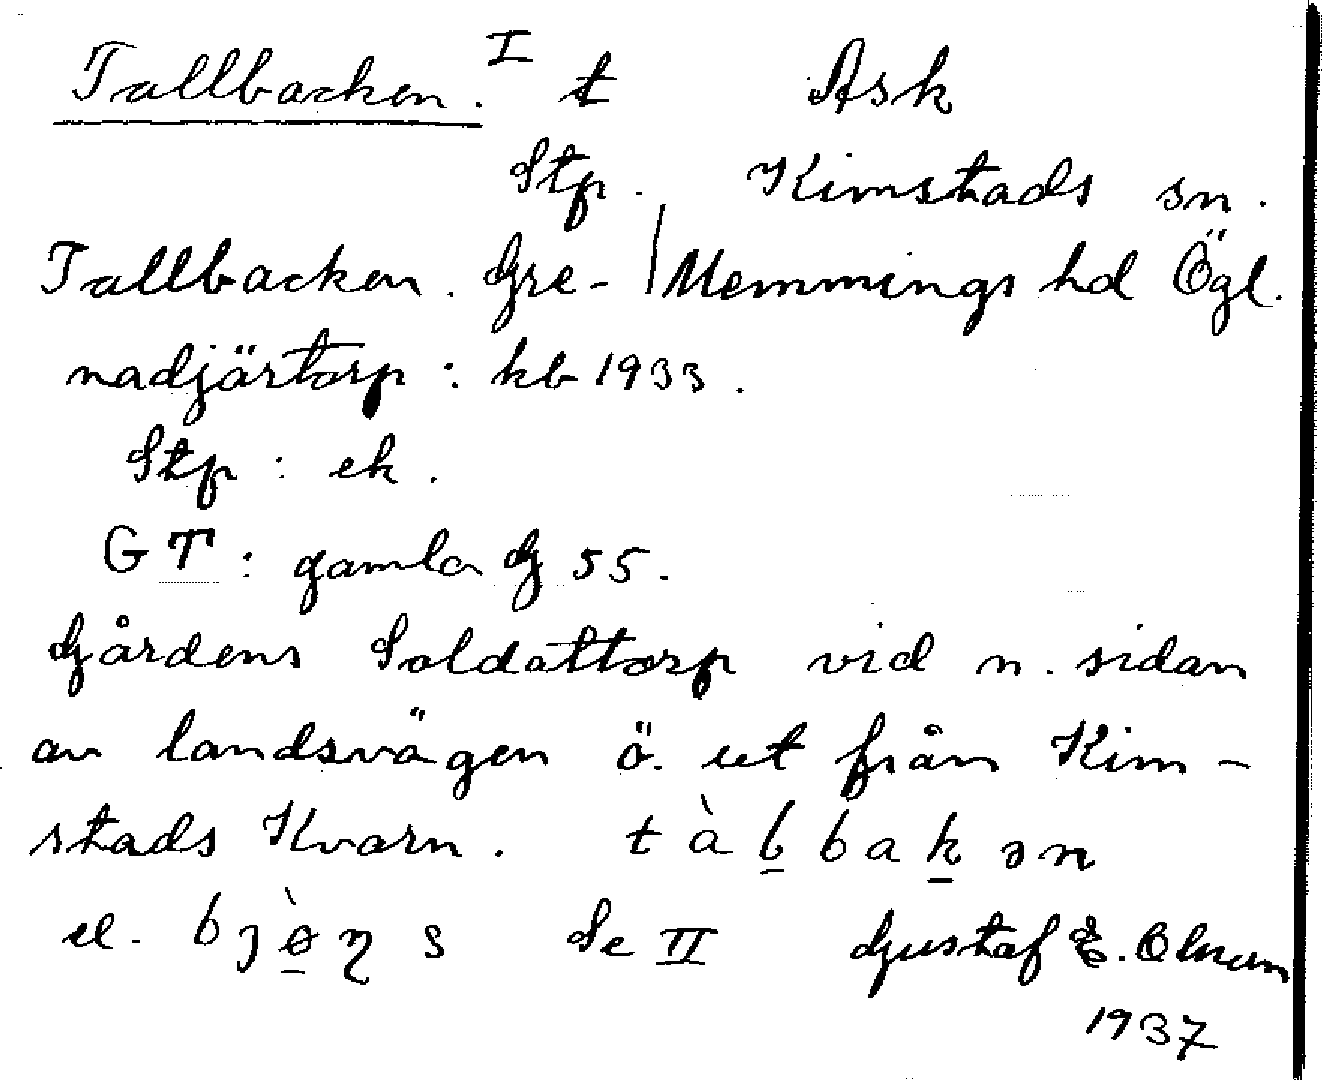 Tallbacken. I t Ask
Stp. Kimstads sn.
Tallbacken. Gre- / Memmings hd Ögl.
nadjärtorp : kb 1933.
Stp : ek.
GT : gamla G 55.
Gårdens Soldattorp vid n. sidan
av landsvägen ö. ut från Kim-
stads Kvarn. t à l b a k ə n
el. b j ò ŋ s Se II Gustaf E.
1937